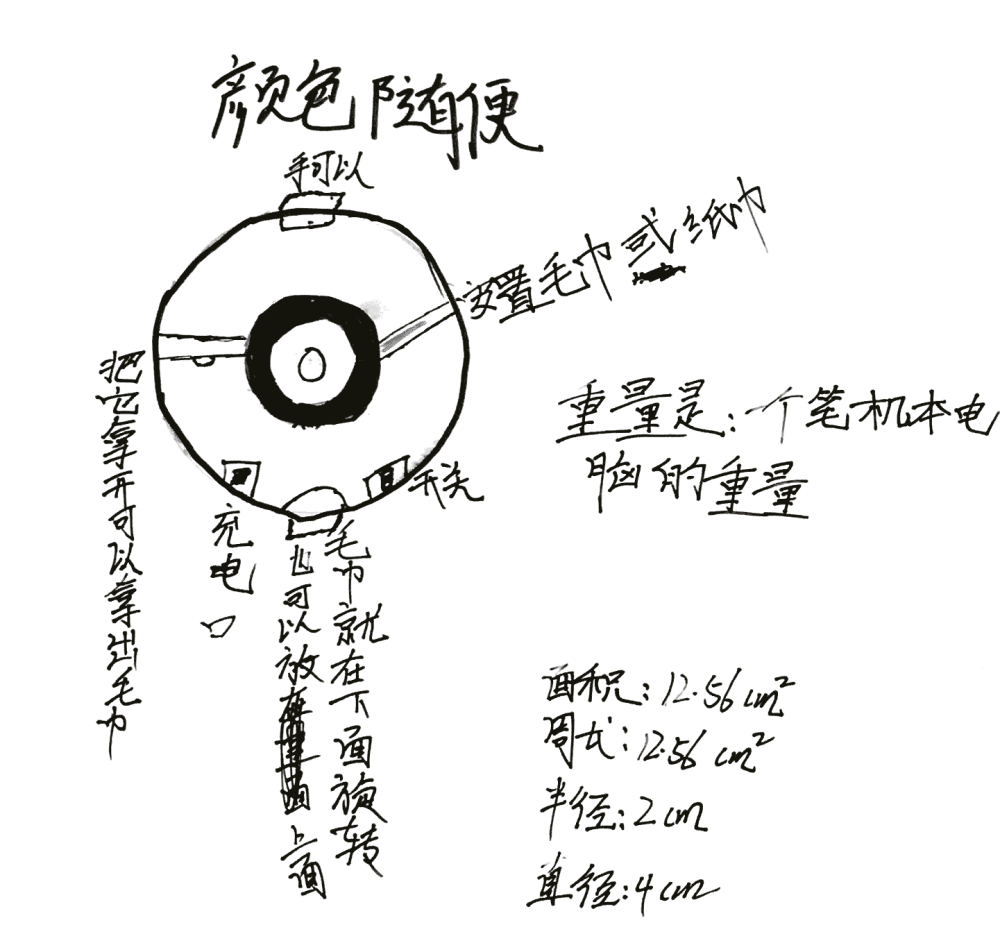 颜色随便
手可以
安置毛巾或纸巾
把它拿开可以拿出毛巾
重量是:一个笔机本电
脑的重量
开关
充电口
毛巾就在下面旋转
也可以放在上面
面积:12.56cm²
周长:12.56cm²
半径:2cm
直径:4cm